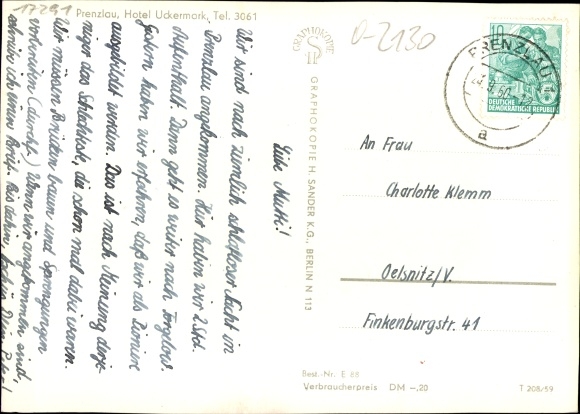 1729,1
Prenzlau, Hotel Uckermark, Tel. 3061
0-2130
Liebe Mutti!
Wir sind nach ziemlich schlafloser Nacht in
Prenzlau angekommen. Hier haben wir 2 Std.
Aufenthalt. Dann geht es weiter nach Torgelow.
Gestern haben wir erfahren, daß wir als Pioniere
ausgebildet werden. Das ist nach Meinung derje-
nigen das Schlechteste, die schon mal dabei waren.
Wir müssen Brücken bauen und Sprengungen
vorbereiten (durchf.) Wenn wir angekommen sind,
schreibe ich einen Brief. Bis dahin, tschüß Dein Peter!
GRAPHOKOPIE
GRAPHOKOPIE H. SANDER K.G., BERLIN N 113
10
DEUTSCHE
DEMOKRATISCHE REPUBLIK
PRENZLAU 1
a
An Frau
Charlotte Klemm
Oelsnitz/V.
Finkenburgstr. 41
Best.-Nr. E 88
Verbraucherpreis DM -,20
T 208/59